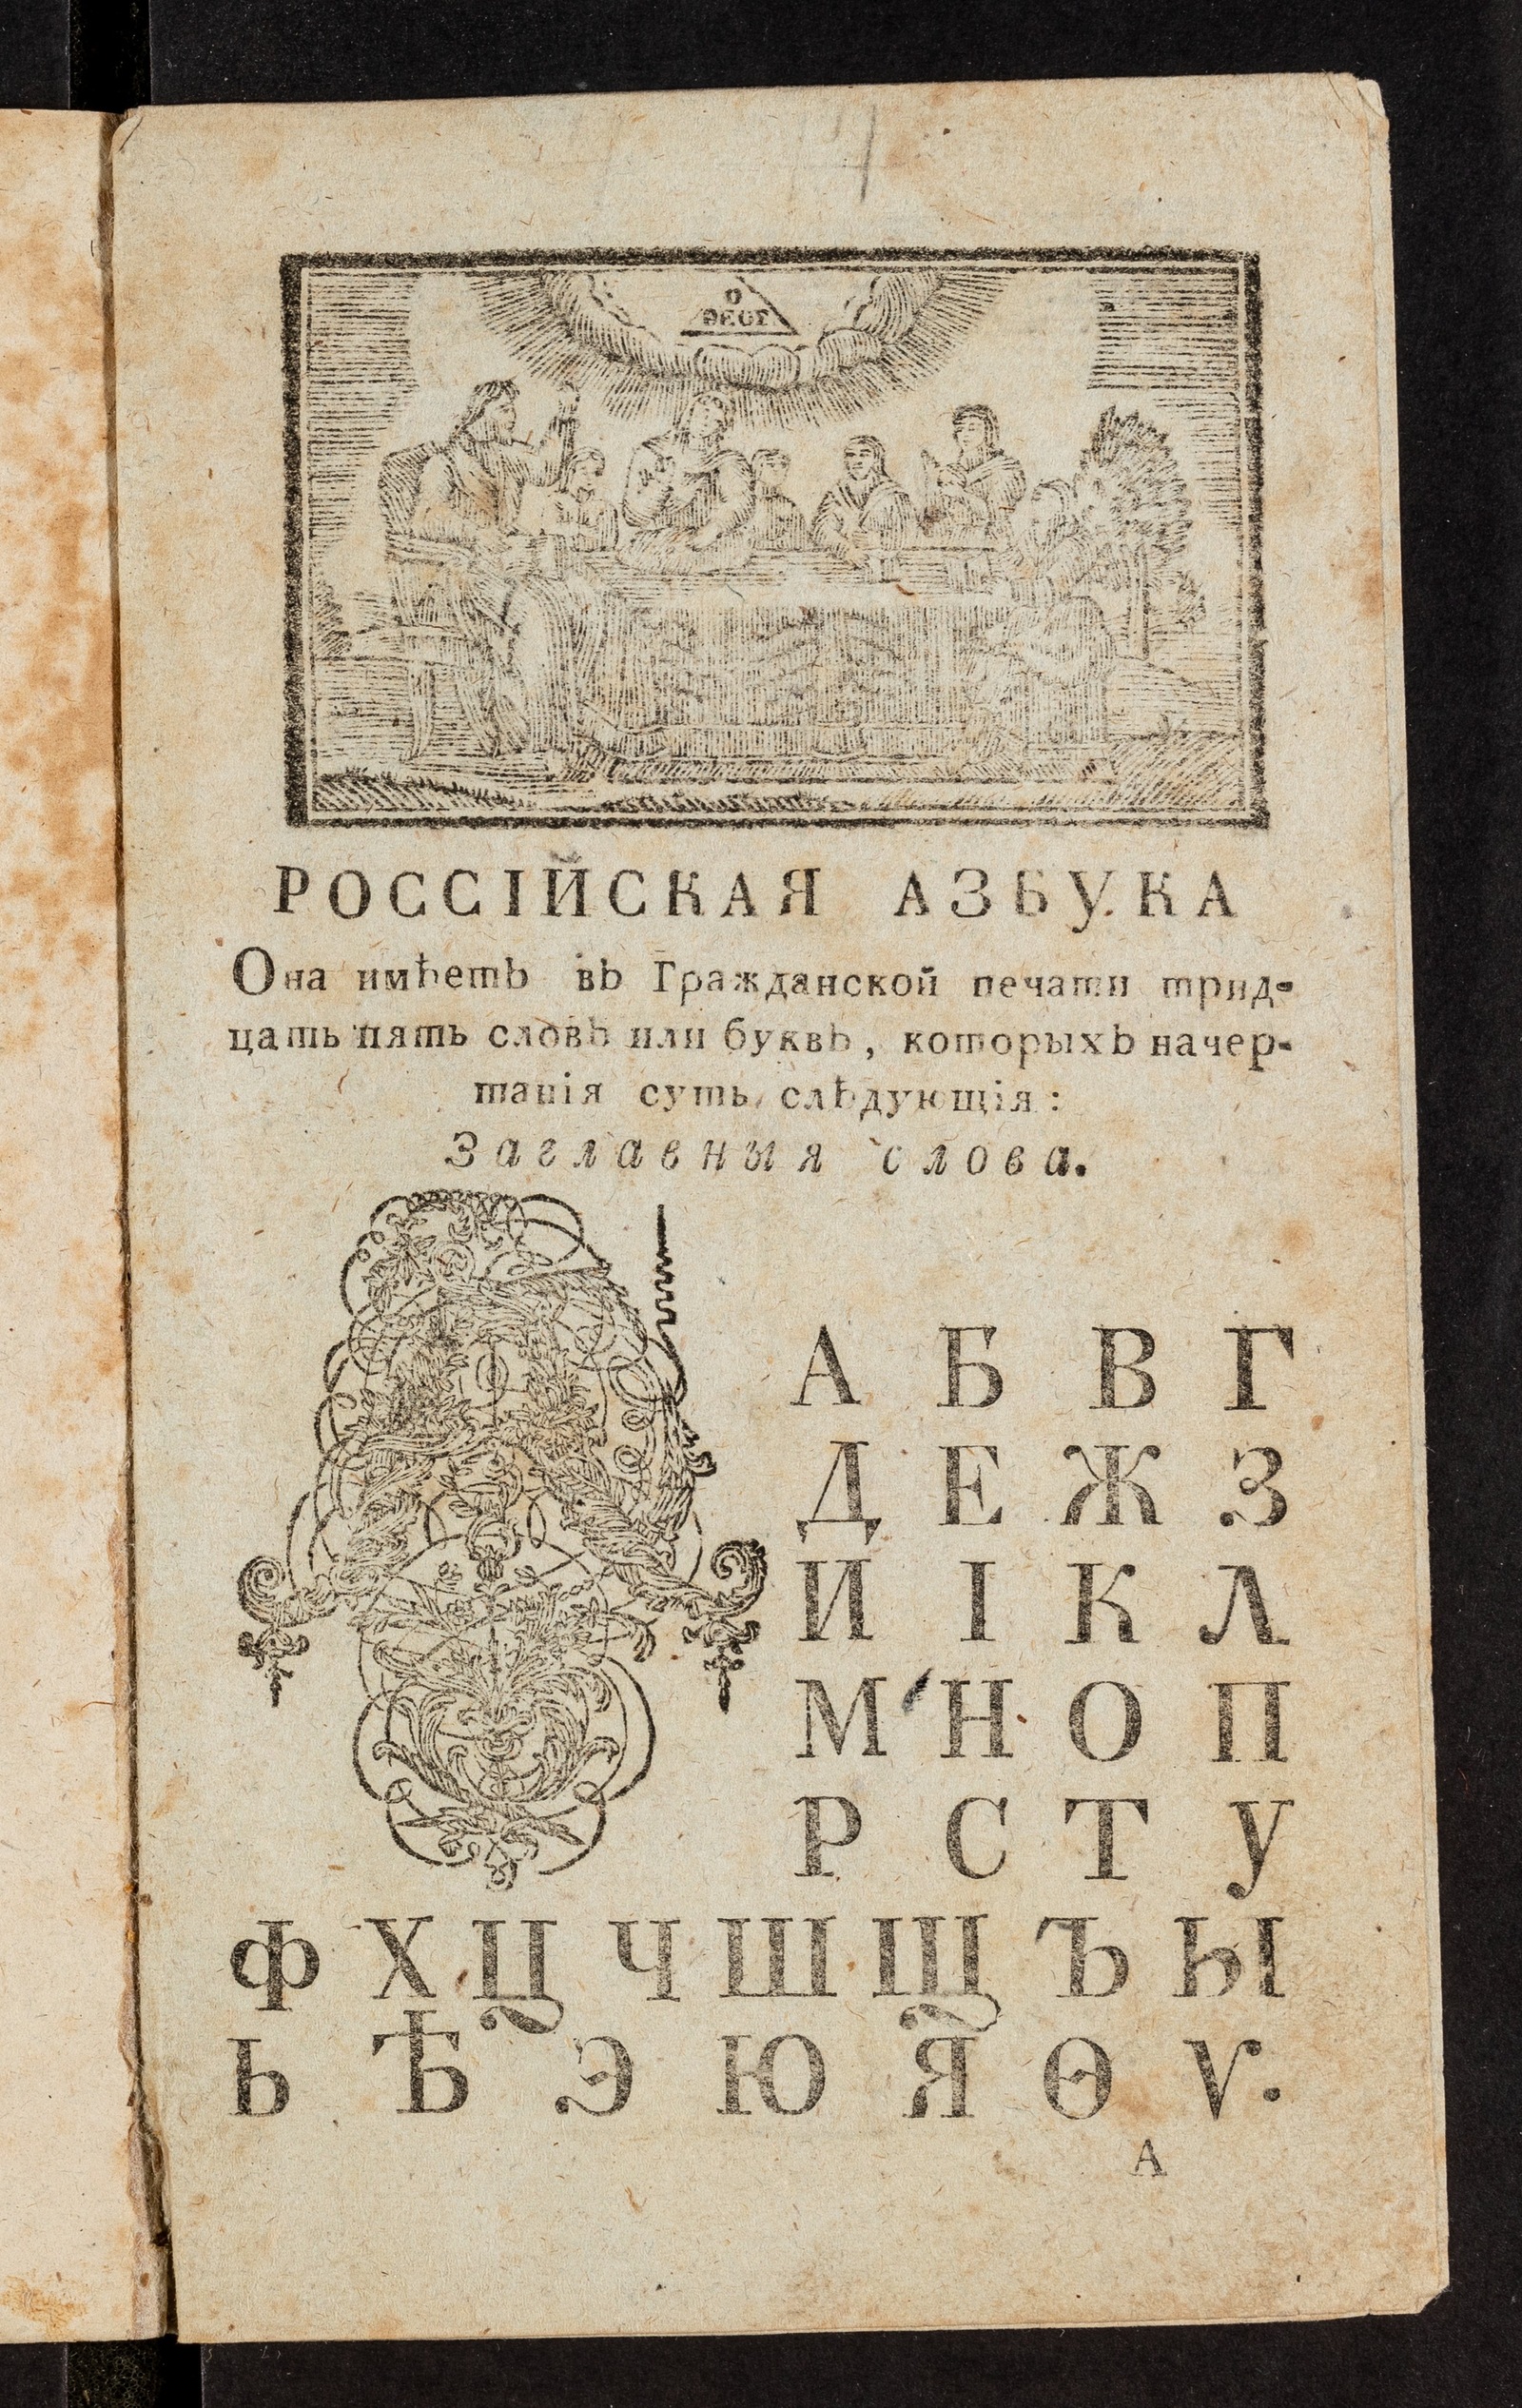 О
ΘΕΟΣ
РОССІЙСКАЯ АЗБУКА
Она имѣетъ въ Гражданской печати трид-
цать пять словъ или буквъ, которыхъ начер-
танія суть слѣдующія:
Заглавныя слова.
А Б В Г
Д Е Ж З
И І К Л
М Н О П
Р С Т У
Ф Х Ц Ч Ш Щ Ъ Ы
Ь Ѣ Э Ю Я Ѳ Ѵ.
А